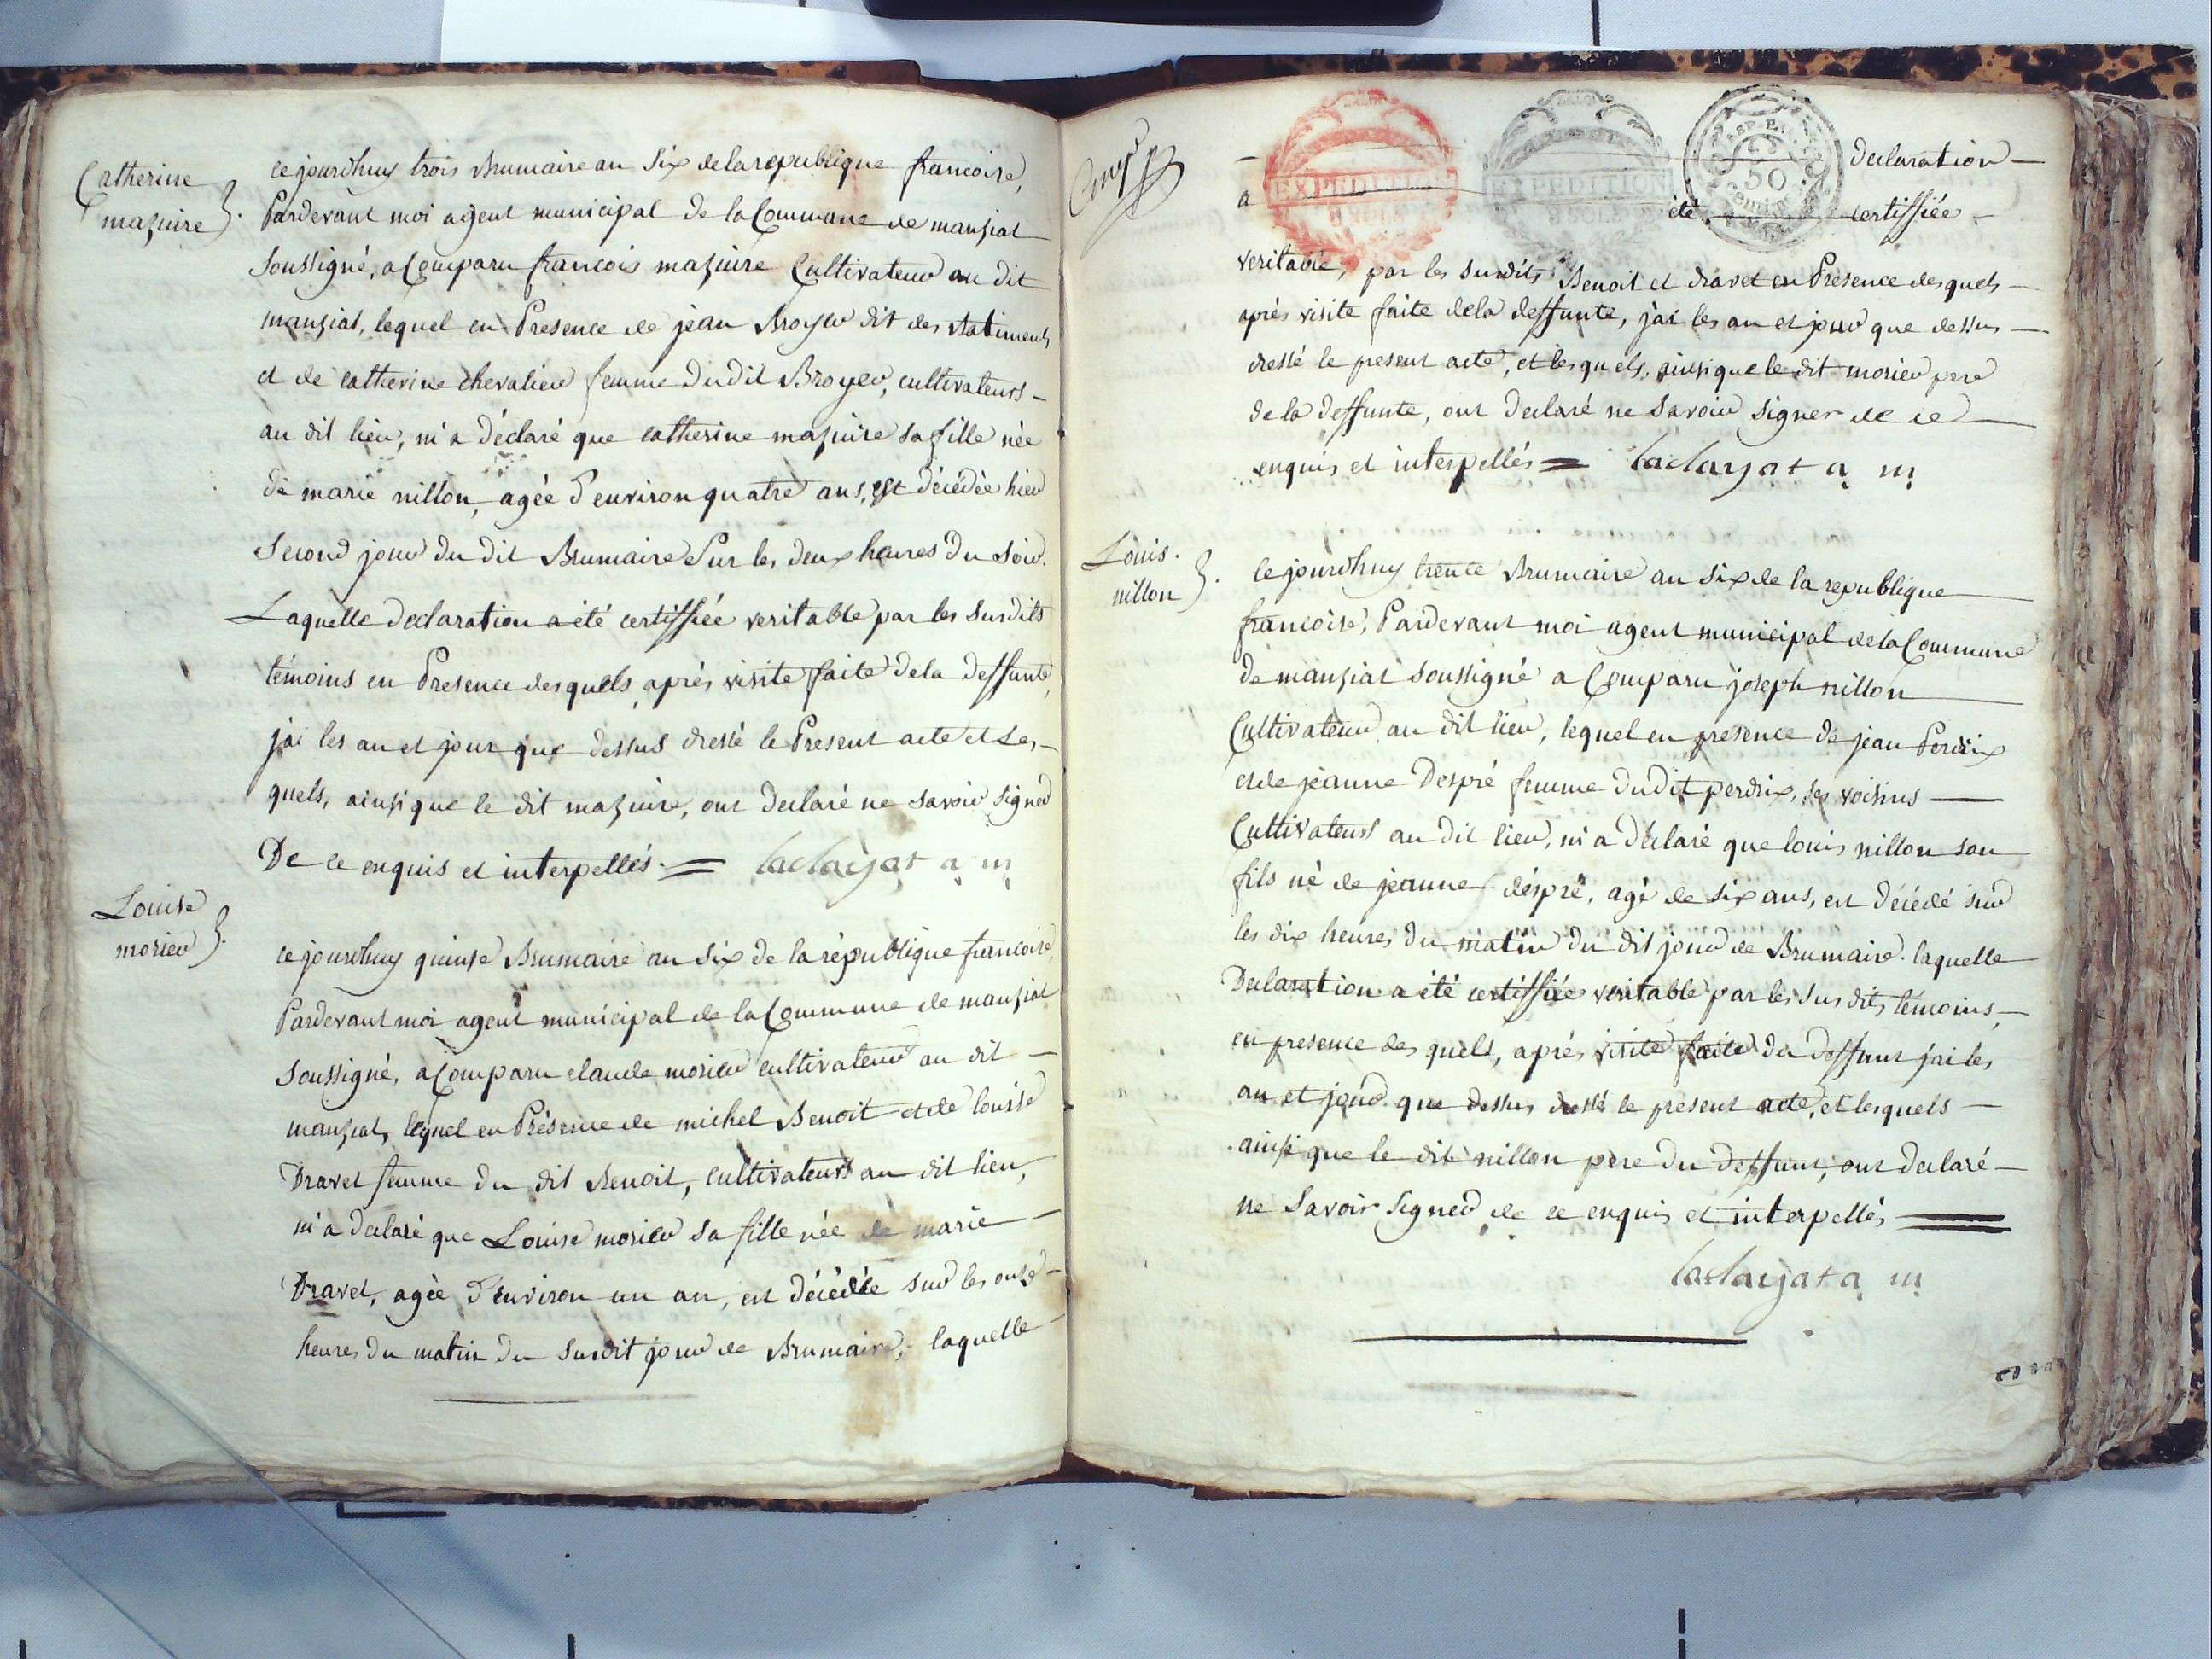 Catherine
mazuire
ce jourdhuy trois Brumaire an Six de la republique francoise,
Pardevant moi agent municipal de la Commune de manziat
Soussigné, a Comparu francois mazuire Cultivateur au dit
manziat, lequel en Presence de jean Broyer dit des
et de catherine chevalier femme du dit Broyer, cultivateurs
au dit lieu, m'a déclaré que catherine mazuire sa fille née
de marie nillon, agée d'environ quatre ans, est décédée hier
Second jour du dit Brumaire Sur les deux heures du Soir.
Laquelle declaration a été certiffiée veritable par les Susdits
témoins en Presence desquels, après visite faite de la deffunte,
j'ai les an et jour que dessus dressé le Present acte et Les-
quels, ainsi que le dit mazuire, ont declaré ne savoir signer
De ce enquis et interpellés. = laclayat a. m.
Louise
morier
ce jourdhuy quinze Brumaire an Six de la république francoise,
Pardevant moi agent municipal de la Commune de manziat
soussigné, a Comparu claude morier cultivateur au dit —
manziat, lequel en Présence de michel Benoit et de louise
Dravet femme du dit Benoit, cultivateurs au dit lieu,
m'a declaré que Louise morier sa fille née de marie —
Dravet, agée d'environ un an, est décédée sur les onze —
heures du matin du susdit jour de Brumaire, laquelle —
EXPEDITION EXPEDITION 50 Declaration —
a été certiffiée —
veritable, par les susdits Benoit et dravet en Presence desquels —
après visite faite de la deffunte, j'ai les an et jour que dessus —
dressé le present acte, et lesquels, ainsi que le dit morier pere
de la deffunte, ont declaré ne savoir signer de ce
enquis et interpellés = laclayat a. m.
Louis.
nillon
ce jourdhuy trente Brumaire an six de la republique
francoise, Pardevant moi agent municipal de la Commune
de manziat soussigné a Comparu joseph nillon
Cultivateur au dit lieu, lequel en presence de jean Perdrix
et de jeanne Despré femme du dit perdrix, ses voisins —
Cultivateurs au dit lieu, m'a déclaré que louis nillon son
fils né de jeanne déspré, agé de six ans, est décédé sur
les dix heures du matin du dit jour de Brumaire. laquelle
Declaration a été certiffiée veritable par les sus dits témoins, —
en presence des quels, après visite faite du deffunt j'ai les
an et jour que dessus dressé le present acte, et lesquels —
ainsi que le dit nillon pere du deffunt, ont declaré —
ne savoir signer de ce enquis et interpellés =
laclayat a. m.